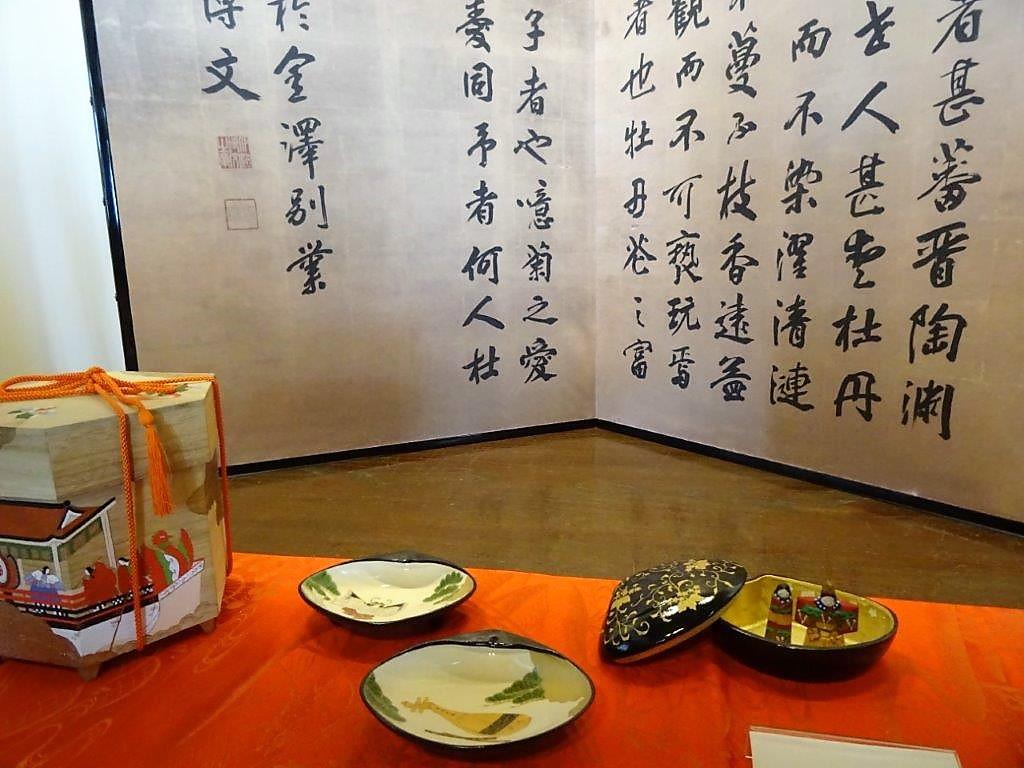 者甚蕃晋陶淵
世人甚愛牡丹
而不染濯清漣
蔓不枝香遠益
觀而不可褻玩焉
者也牡丹花之富
子者也噫菊之愛
愛同予者何人牡
於金澤別業
博文